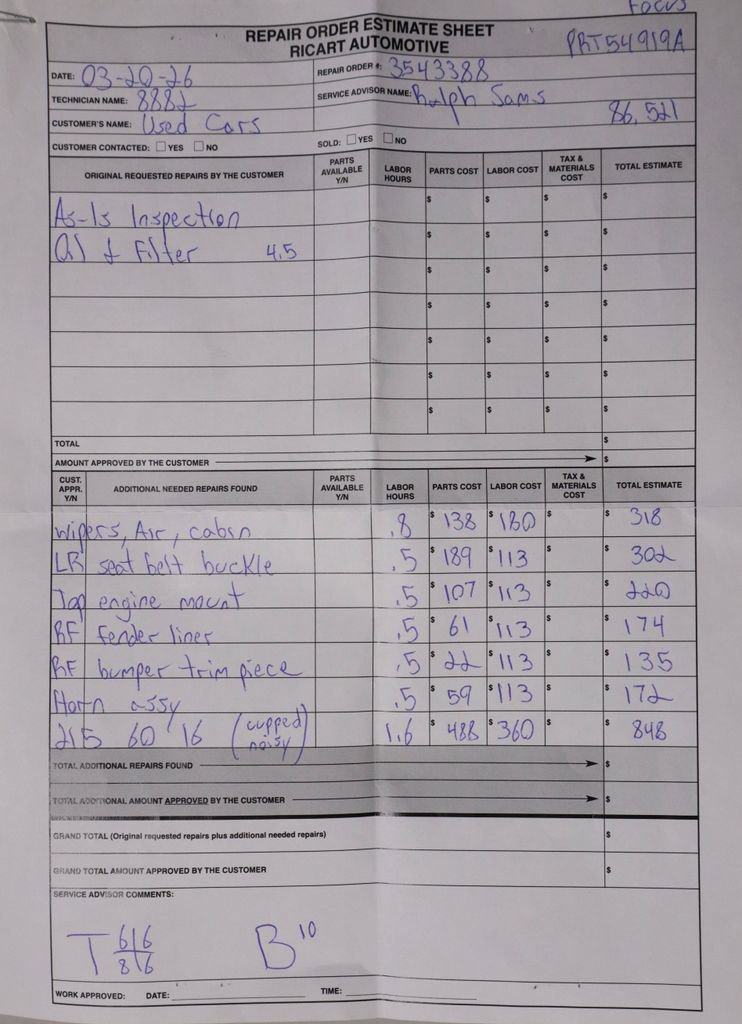 Focus
REPAIR ORDER ESTIMATE SHEET
RICART AUTOMOTIVE
PRT54919A
DATE: 03-20-26 REPAIR ORDER #: 3543388
TECHNICIAN NAME: 8882 SERVICE ADVISOR NAME: Ralph Sams
86,521
CUSTOMER'S NAME: Used Cars
CUSTOMER CONTACTED: ☐ YES ☐ NO SOLD: ☐ YES ☐ NO
ORIGINAL REQUESTED REPAIRS BY THE CUSTOMER PARTS AVAILABLE Y/N LABOR HOURS PARTS COST LABOR COST TAX & MATERIALS COST TOTAL ESTIMATE
As-Is Inspection $ $ $ $
Oil & Filter 4.5 $ $ $ $
$ $ $ $
$ $ $ $
$ $ $ $
$ $ $ $
$ $ $ $
TOTAL $
AMOUNT APPROVED BY THE CUSTOMER $
CUST. APPR. Y/N ADDITIONAL NEEDED REPAIRS FOUND PARTS AVAILABLE Y/N LABOR HOURS PARTS COST LABOR COST TAX & MATERIALS COST TOTAL ESTIMATE
Wipers, Air, cabin .8 $ 138 $ 180 $ $ 318
LR seat belt buckle .5 $ 189 $ 113 $ $ 302
Top engine mount .5 $ 107 $ 113 $ $ 220
RF fender liner .5 $ 61 $ 113 $ $ 174
RF bumper trim piece .5 $ 22 $ 113 $ $ 135
Horn assy .5 $ 59 $ 113 $ $ 172
215 60 16 (cupped noisy) 1.6 $ 488 $ 360 $ $ 848
TOTAL ADDITIONAL REPAIRS FOUND $
TOTAL ADDITIONAL AMOUNT APPROVED BY THE CUSTOMER $
GRAND TOTAL (Original requested repairs plus additional needed repairs) $
GRAND TOTAL AMOUNT APPROVED BY THE CUSTOMER $
SERVICE ADVISOR COMMENTS:
T 6|6 B 10
8|6
WORK APPROVED: DATE: TIME: